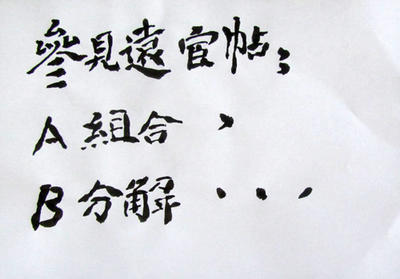 參見遠官帖；
A 組合，
B 分解・・・